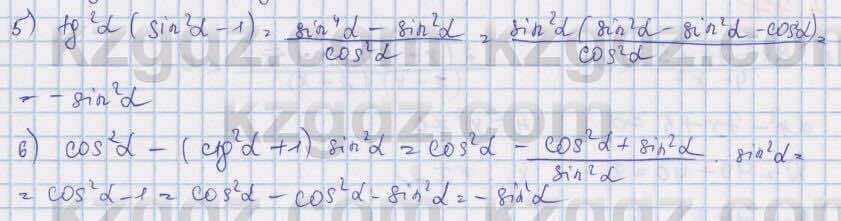 5) tg²α (sin²α - 1) = (sin⁴α - sin²α)/cos²α = sin²α (sin²α - sin²α - cos²α)/cos²α =
= - sin²α
6) cos²α - (ctg²α + 1) sin²α = cos²α - (cos²α + sin²α)/sin²α · sin²α =
= cos²α - 1 = cos²α - cos²α - sin²α = - sin²α
kzgdz.com